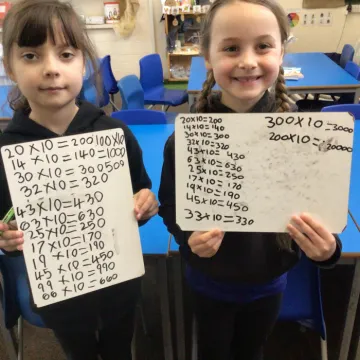 20 x 10 = 200 100 x 10
14 x 10 = 140 = 1000
30 x 10 = 300 500
32 x 10 = 320
43 x 10 = 430
63 x 10 = 630
25 x 10 = 250
17 x 10 = 170
19 x 10 = 190
45 x 10 = 450
99 x 10 = 990
66 x 10 = 660
20 x 10 = 200
14 x 10 = 140
30 x 10 = 300
32 x 10 = 320
43 x 10 = 430
63 x 10 = 630
25 x 10 = 250
17 x 10 = 170
19 x 10 = 190
45 x 10 = 450
33 x 10 = 330
300 x 10 = 3000
200 x 10 =